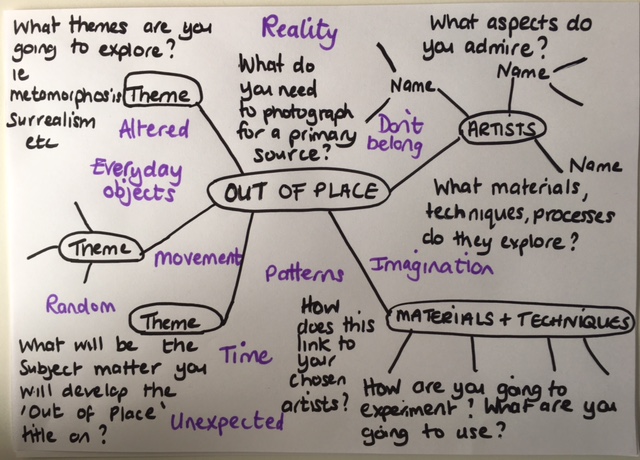 What themes are you
going to explore?
ie
metamorphosis
Surrealism
etc
Theme
Altered
Everyday
objects
Reality
What do
you need
to photograph
for a primary
source?
Don't
belong
What aspects do
you admire?
Name
Name
ARTISTS
Name
What materials,
techniques, processes
do they explore?
OUT OF PLACE
Theme
movement
Random
Theme
Patterns
Imagination
What will be the
Subject matter you
will develop the
'Out of Place'
title on?
Time
Unexpected
How
does this
link to
your
chosen
artists?
MATERIALS + TECHNIQUES
How are you going to
experiment? What are you
going to use?